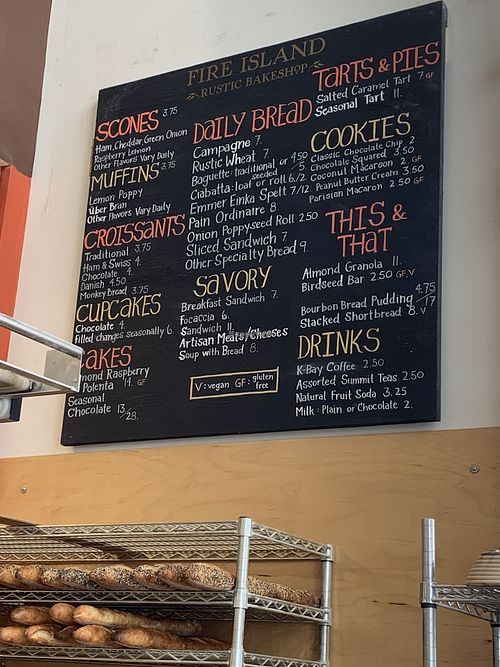 FIRE ISLAND
RUSTIC BAKESHOP
SCONES 3.75
Ham, Cheddar, Green Onion
Raspberry Lemon
Other Flavors Vary Daily
MUFFINS 3.75
Lemon Poppy
Über Bran
Other Flavors Vary Daily
CROISSANTS
Traditional 3.75
Ham & Swiss 4.
Chocolate 4.
Danish 4.50
Monkey Bread 3.75
CUPCAKES
Chocolate 4.
Filled changes seasonally 6.
CAKES
mond Raspberry
Polenta 14. GF
Seasonal
Chocolate 13/28.
DAILY BREAD
Campagne 7.
Rustic Wheat 7
Baguette: traditional, or 4.50
seeded 5
Ciabatta: loaf or roll 6/2
Emmer Einka Spelt 7/12.
Pain Ordinaire 8
Onion Poppyseed Roll 2.50
Sliced Sandwich 7
Other Specialty Bread 9.
SAVORY
Breakfast Sandwich 7.
Focaccia 6.
Sandwich 11.
Artisan Meats/Cheeses
Soup with Bread 8.
V: vegan GF: gluten free
TARTS & PIES
Salted Caramel Tart 7 GF
Seasonal Tart 11.
COOKIES
Classic Chocolate Chip 2.
Chocolate Squared 3.50
Coconut Macaroon 2 GF
Peanut Butter Cream 3.50
Parisian Macaron 2.50 GF
THIS &
THAT
Almond Granola 11.
Birdseed Bar 2.50 GF,V
Bourbon Bread Pudding 4.75/17
Stacked Shortbread 8. V
DRINKS
K-Bay Coffee 2.50
Assorted Summit Teas 2.50
Natural Fruit Soda 3.25
Milk: Plain or Chocolate 2.